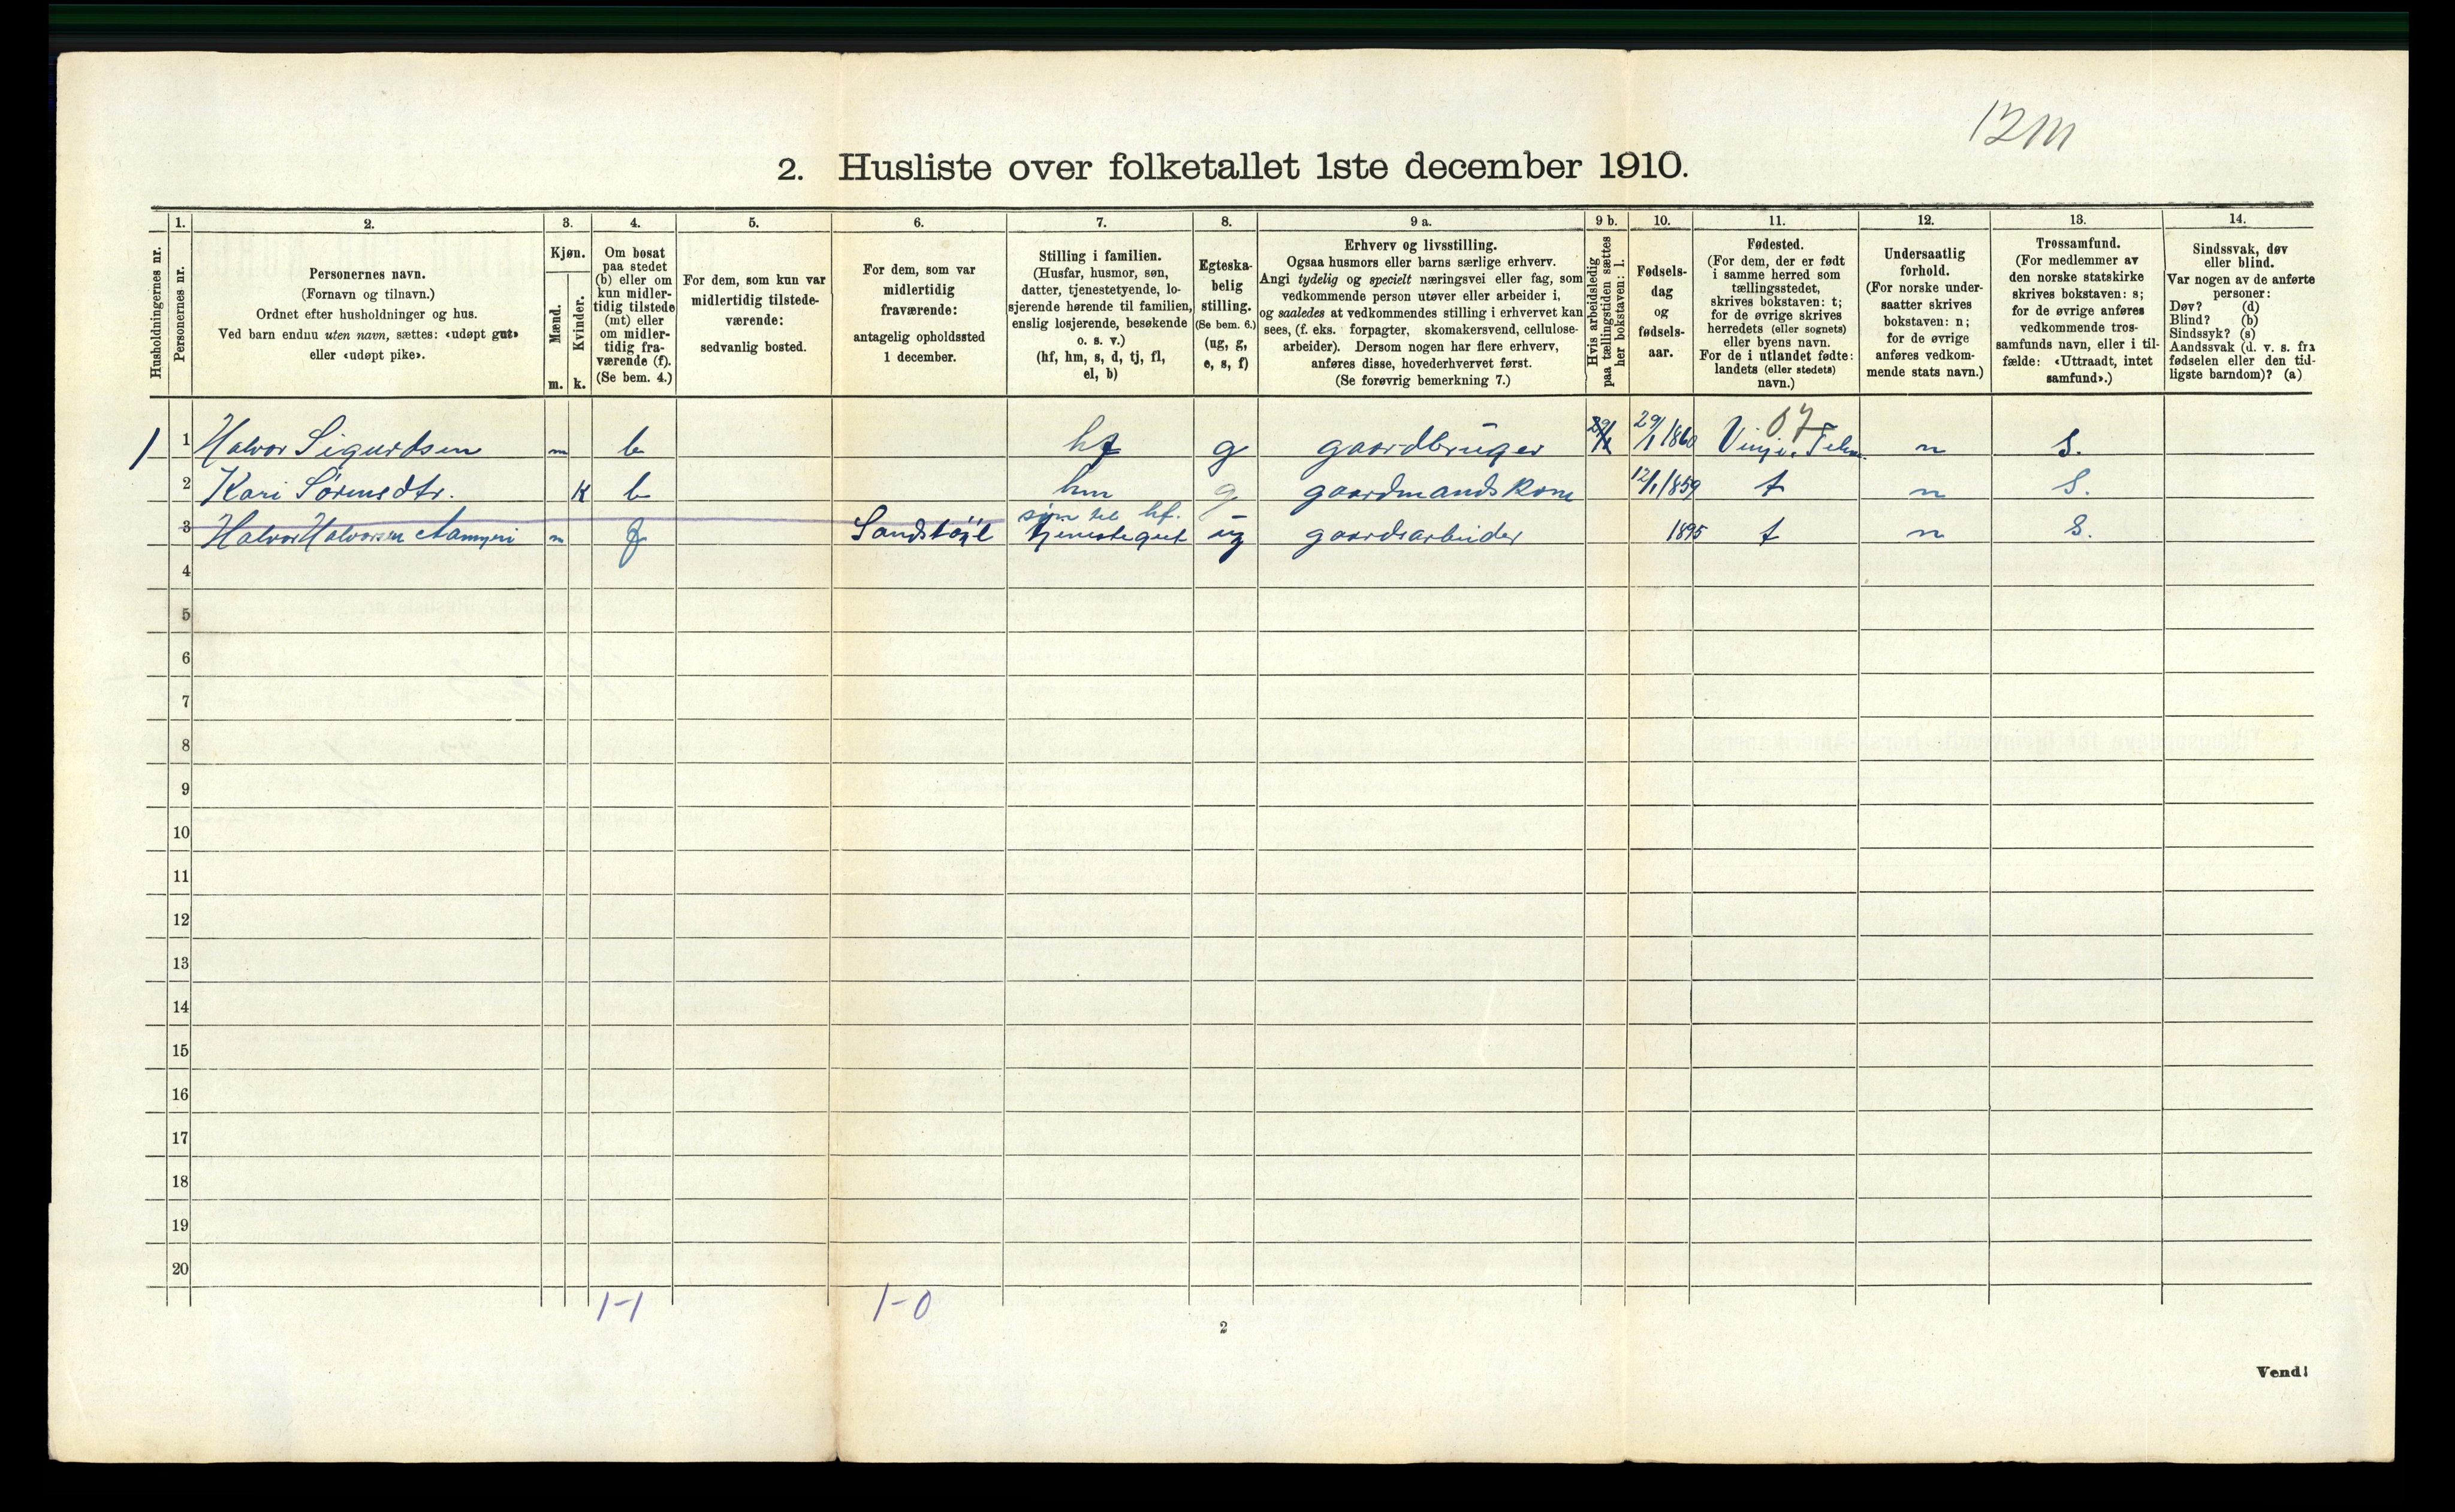 12m
2. Husliste over folketallet 1ste december 1910.
Husholdningernes nr.
1.
Personernes nr.
2.
Personernes navn.
(Fornavn og tilnavn.)
Ordnet efter husholdninger og hus.
Ved barn endnu uten navn, sættes: «udøpt gut»
eller «udøpt pike».
3.
Kjøn.
Mænd.
m.
Kvinder.
k.
4.
Om bosat
paa stedet
(b) eller om
kun midler-
tidig tilstede
(mt) eller
om midler-
tidig fra-
værende (f).
(Se bem. 4.)
5.
For dem, som kun var
midlertidig tilstede-
værende:
sedvanlig bosted.
6.
For dem, som var
midlertidig
fraværende:
antagelig opholdssted
1 december.
7.
Stilling i familien.
(Husfar, husmor, søn,
datter, tjenestetyende, lo-
sjerende hørende til familien,
enslig losjerende, besøkende
o. s. v.)
(hf, hm, s, d, tj, fl,
el, b)
8.
Egteska-
belig
stilling.
(Se bem. 6.)
(ug, g,
e, s, f)
9 a.
Erhverv og livsstilling.
Ogsaa husmors eller barns særlige erhverv.
Angi tydelig og specielt næringsvei eller fag, som
vedkommende person utøver eller arbeider i,
og saaledes at vedkommendes stilling i erhvervet kan
sees, (f. eks. forpagter, skomakersvend, cellulose-
arbeider). Dersom nogen har flere erhverv,
anføres disse, hovederhvervet først.
(Se forøvrig bemerkning 7.)
9 b.
Hvis arbeidsledig
paa tællingstiden sættes
her bokstaven: l.
10.
Fødsels-
dag
og
fødsels-
aar.
11.
Fødested.
(For dem, der er født
i samme herred som
tællingsstedet,
skrives bokstaven: t;
for de øvrige skrives
herredets (eller sognets)
eller byens navn.
For de i utlandet fødte:
landets (eller stedets)
navn.)
12.
Undersaatlig
forhold.
(For norske under-
saatter skrives
bokstaven: n;
for de øvrige
anføres vedkom-
mende stats navn.)
13.
Trossamfund.
(For medlemmer av
den norske statskirke
skrives bokstaven: s;
for de øvrige anføres
vedkommende tros-
samfunds navn, eller i til-
fælde: «Uttraadt, intet
samfund».)
14.
Sindssvak, døv
eller blind.
Var nogen av de anførte
personer:
Døv? (d)
Blind? (b)
Sindssyk? (s)
Aandssvak (d. v. s. fra
fødselen eller den tid-
ligste barndom)? (a)
07
1 1 Halvor Sigurdsen m b hf g gaardbruger 29/1 1860 Vinje, Telem. n s.
2 Kari Sørensdtr. K b hm g gaardmandskone 12/1 1859 t n s.
søn til hf.
3 Halvor Halvorsen m f Sandstöyl tjenestegut ug gaardsarbeider 1895 t n s.
4
5
6
7
8
9
10
11
12
13
14
15
16
17
18
19
20
1-1 1-0
2
Vend!